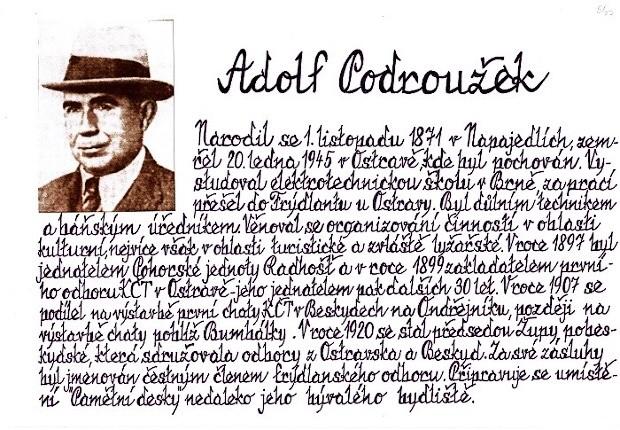 Adolf Podroužek
Narodil se 1. listopadu 1871 v Napajedlích, zem-
řel 20. ledna 1945 v Ostravě, kde byl pochován. Vy-
studoval elektrotechnickou školu v Brně, za prací
přešel do Frýdlantu u Ostravy. Byl důlním technikem
a báňským úředníkem. Věnoval se organizování činnosti v oblasti
kulturní, nejvíce však v oblasti turistické a zvláště lyžařské. V roce 1897 byl
jednatelem Pohorské jednoty Radhošť a v roce 1899 zakladatelem první-
ho odboru KČT v Ostravě - jeho jednatelem pak dalších 30 let. V roce 1907 se
podílel na výstavbě první chaty KČT v Beskydech na Ondřejníku, později na
výstavbě chaty poblíž Bumbálky. V roce 1920 se stal předsedou Župy pobes-
kydské, která sdružovala odbory z Ostravska a Beskyd. Za své zásluhy
byl jmenován čestným členem frýdlanského odboru. Připravuje se umístě-
ní Pamětní desky nedaleko jeho bývalého bydliště.